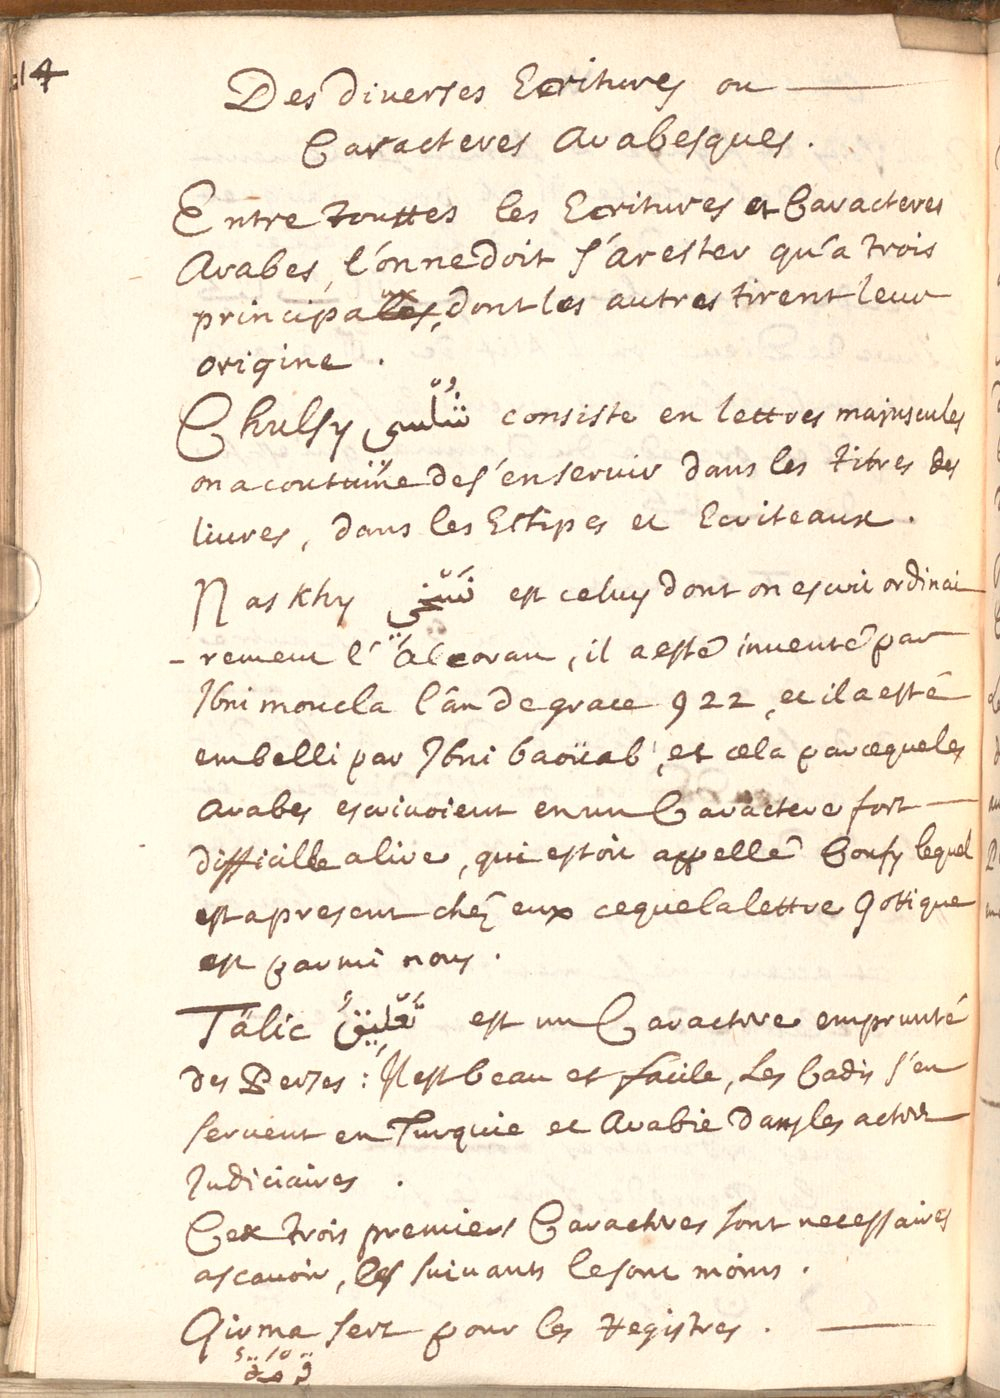 14
Des diverses Ecritures ou
Caracteres Arabesques.
Entre touttes les Ecritures et Caracteres
Arabes, l'on ne doit s'arester qu'a trois
principaux, dont les autres tirent leur
origine.
Chulsy ثُلُثى consiste en lettres majuscules
on a coutume de s'en servir dans les titres des
livres, dans les Estipes et Ecriteaux.
Naskhy نَسْخي est celuy dont on escrit ordinai
- rement l'alcoran, il a esté inventé par
Ibni moucla l'ân de grace 922, et il a esté
embelli par Ibni baoüab, et cela parceque les
Arabes escrivoient en un Caractere fort
difficille a lire, qui estoit appellé Coufy lequel
est apresent chez eux ce que la lettre Gottique
est parmi nous.
Tälic تَعْلِيقْ est un Caractere emprunté
des Perses: Il est beau et facile, Les Cadis s'en
servent en Turquie et Arabie dans les actes
Judiciaires.
Ces trois premiers Caracteres sont necessaires
a scavoir, les suivants le sont moins.
Qirma sert pour les Registres.